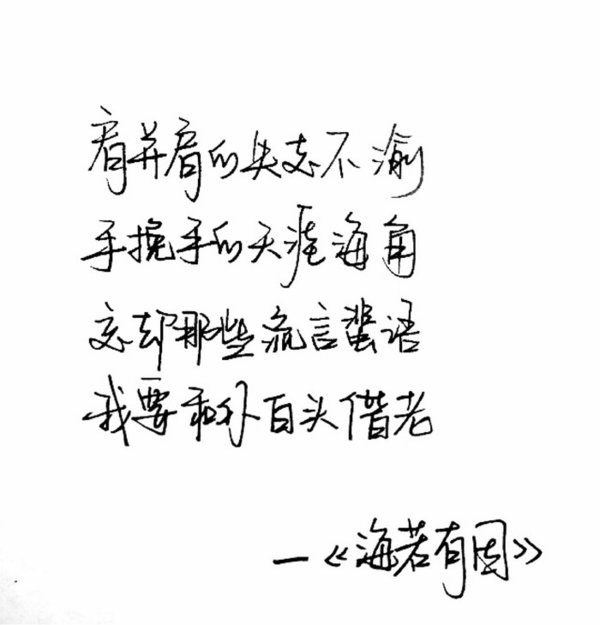 肩并肩的失志不渝
手挽手的天涯海角
忘却那些流言蜚语
我要和你百头偕老
—《海若有因》